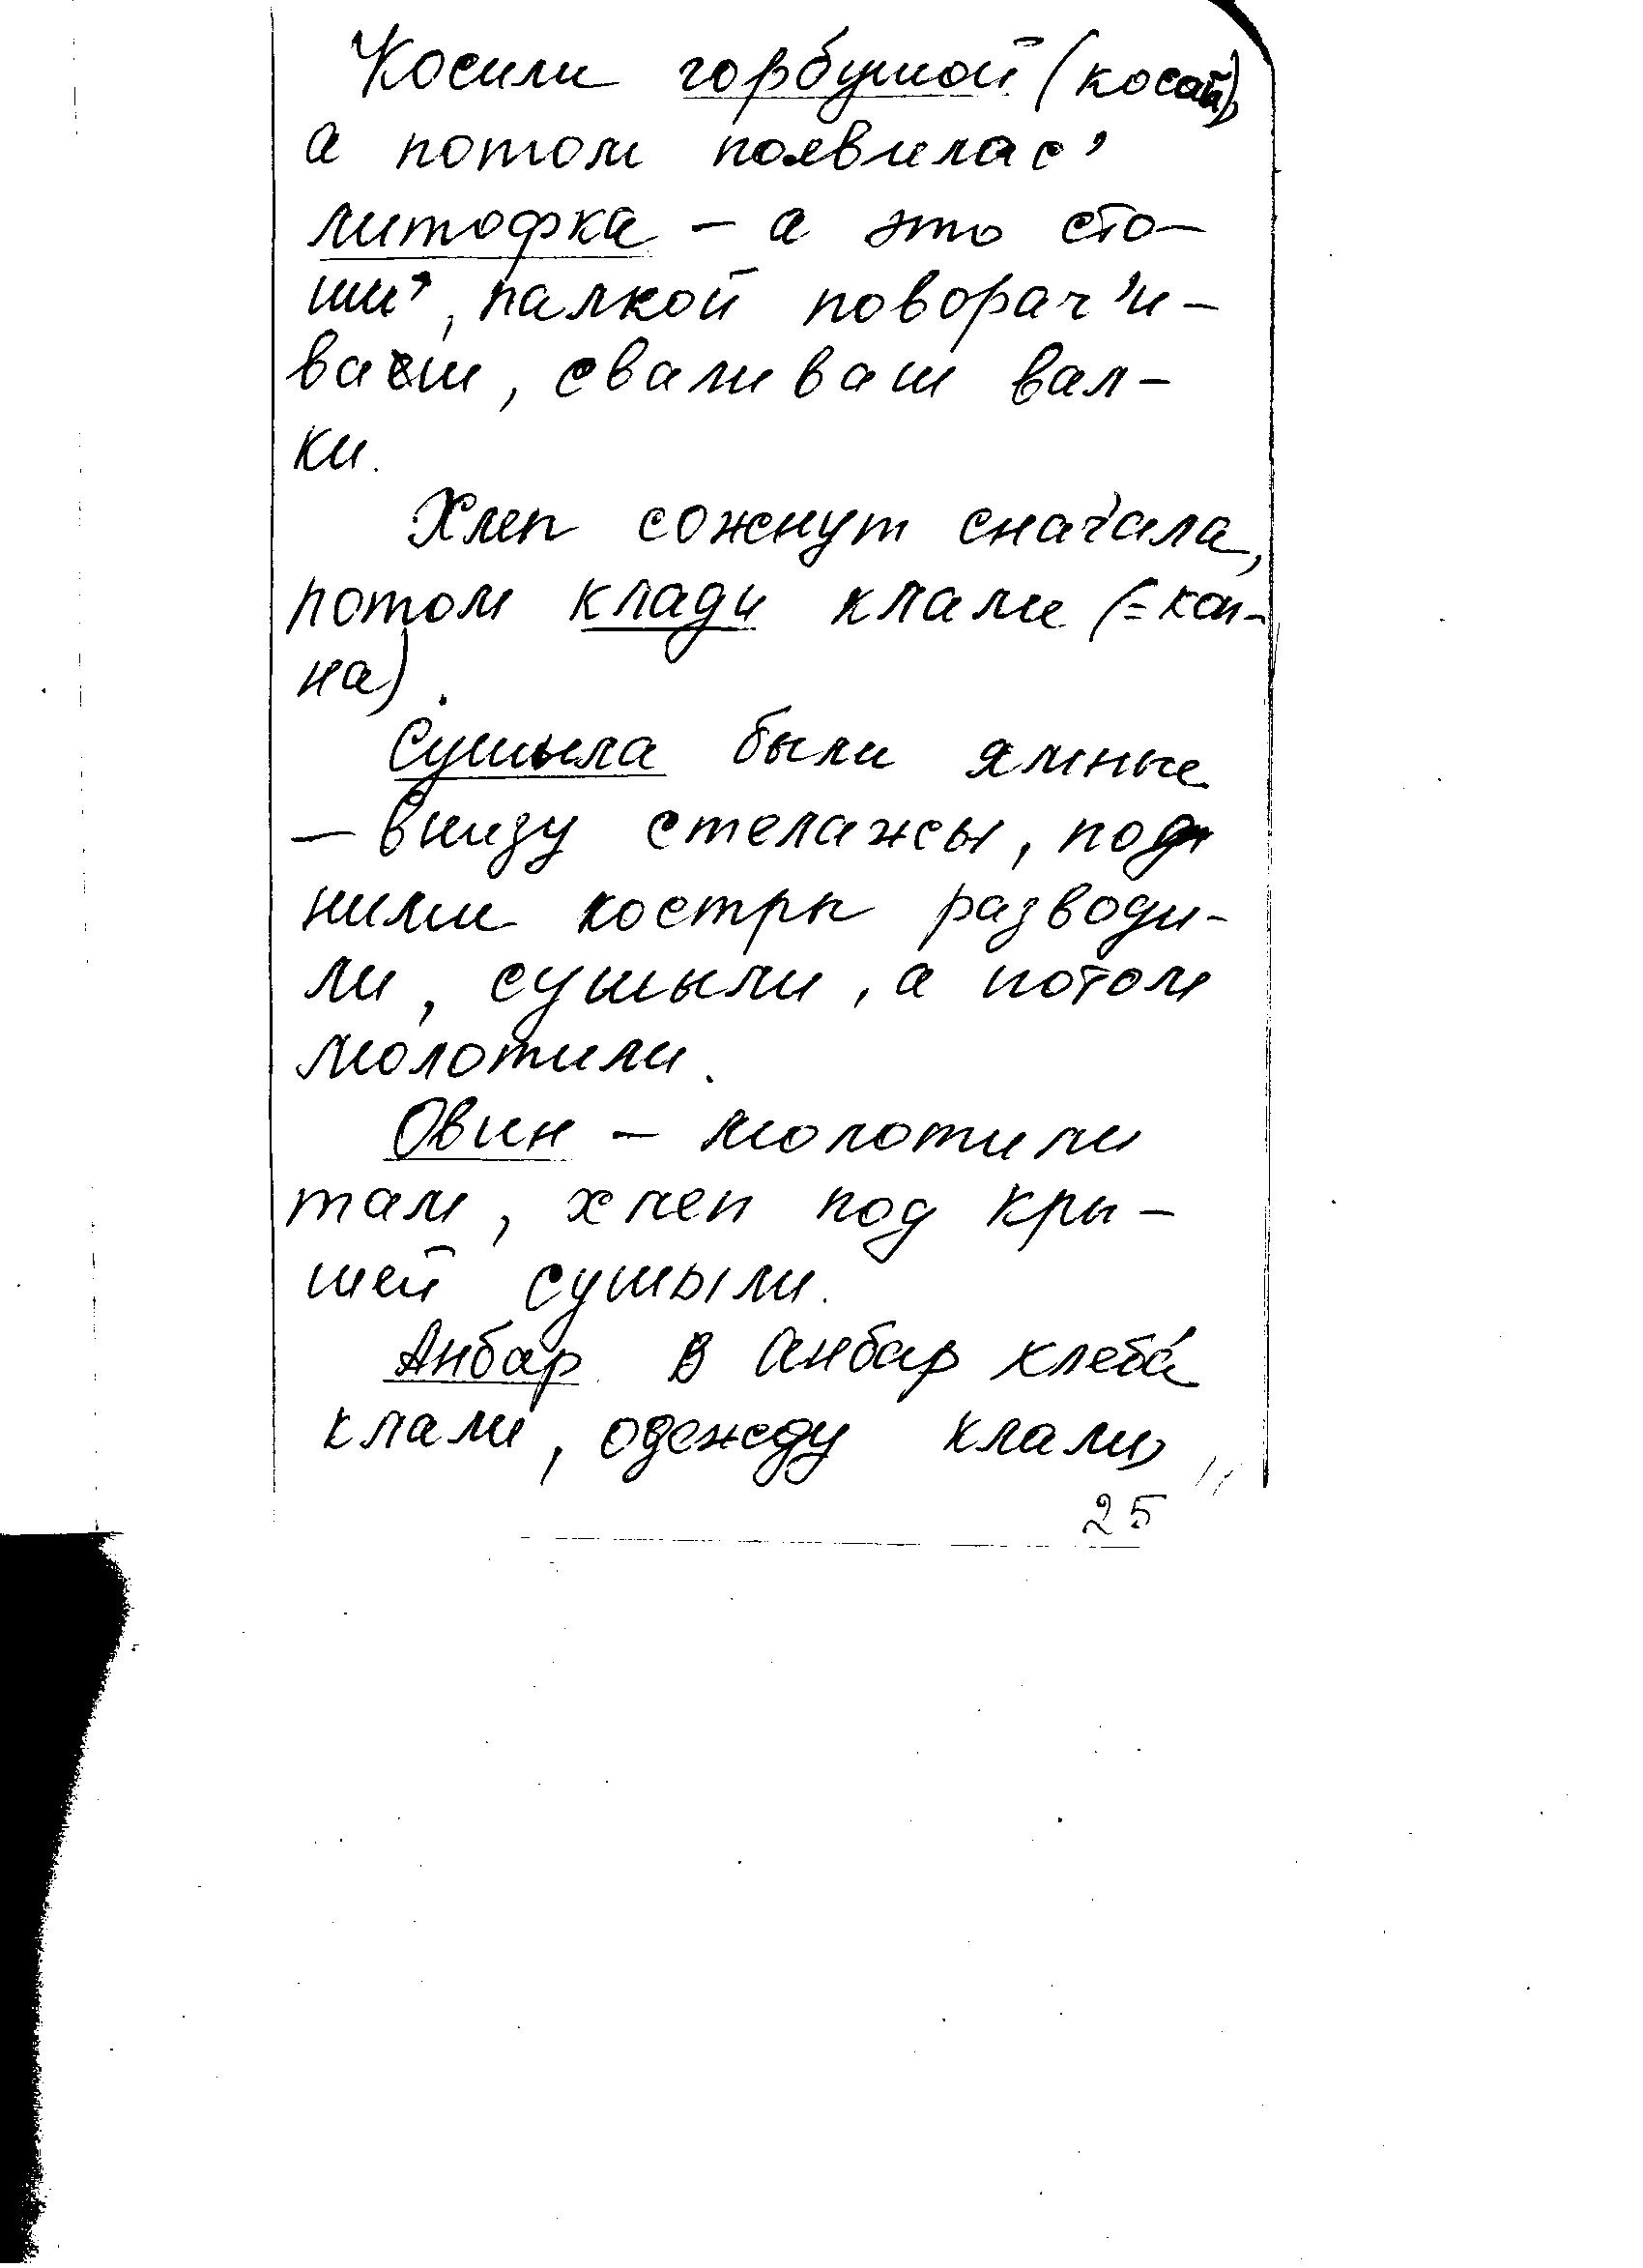 Косили горбушой (косай),
а потом появилас'
литофка – а это сто-
иш', палкой поворач'и-
ваш, сваливаш вал-
ки.
Хлеп сожнут сначала,
потом клади клали (= коп-
на).
Сушыла были ямные
– внизу стелажы, под
ними костры разводи-
ли, сушыли, а потом
молотили.
Овин – молотили
там, хлеп под кры-
шей сушыли.
Анбар. В анбар хлеба́
клали, одежду клали,
25